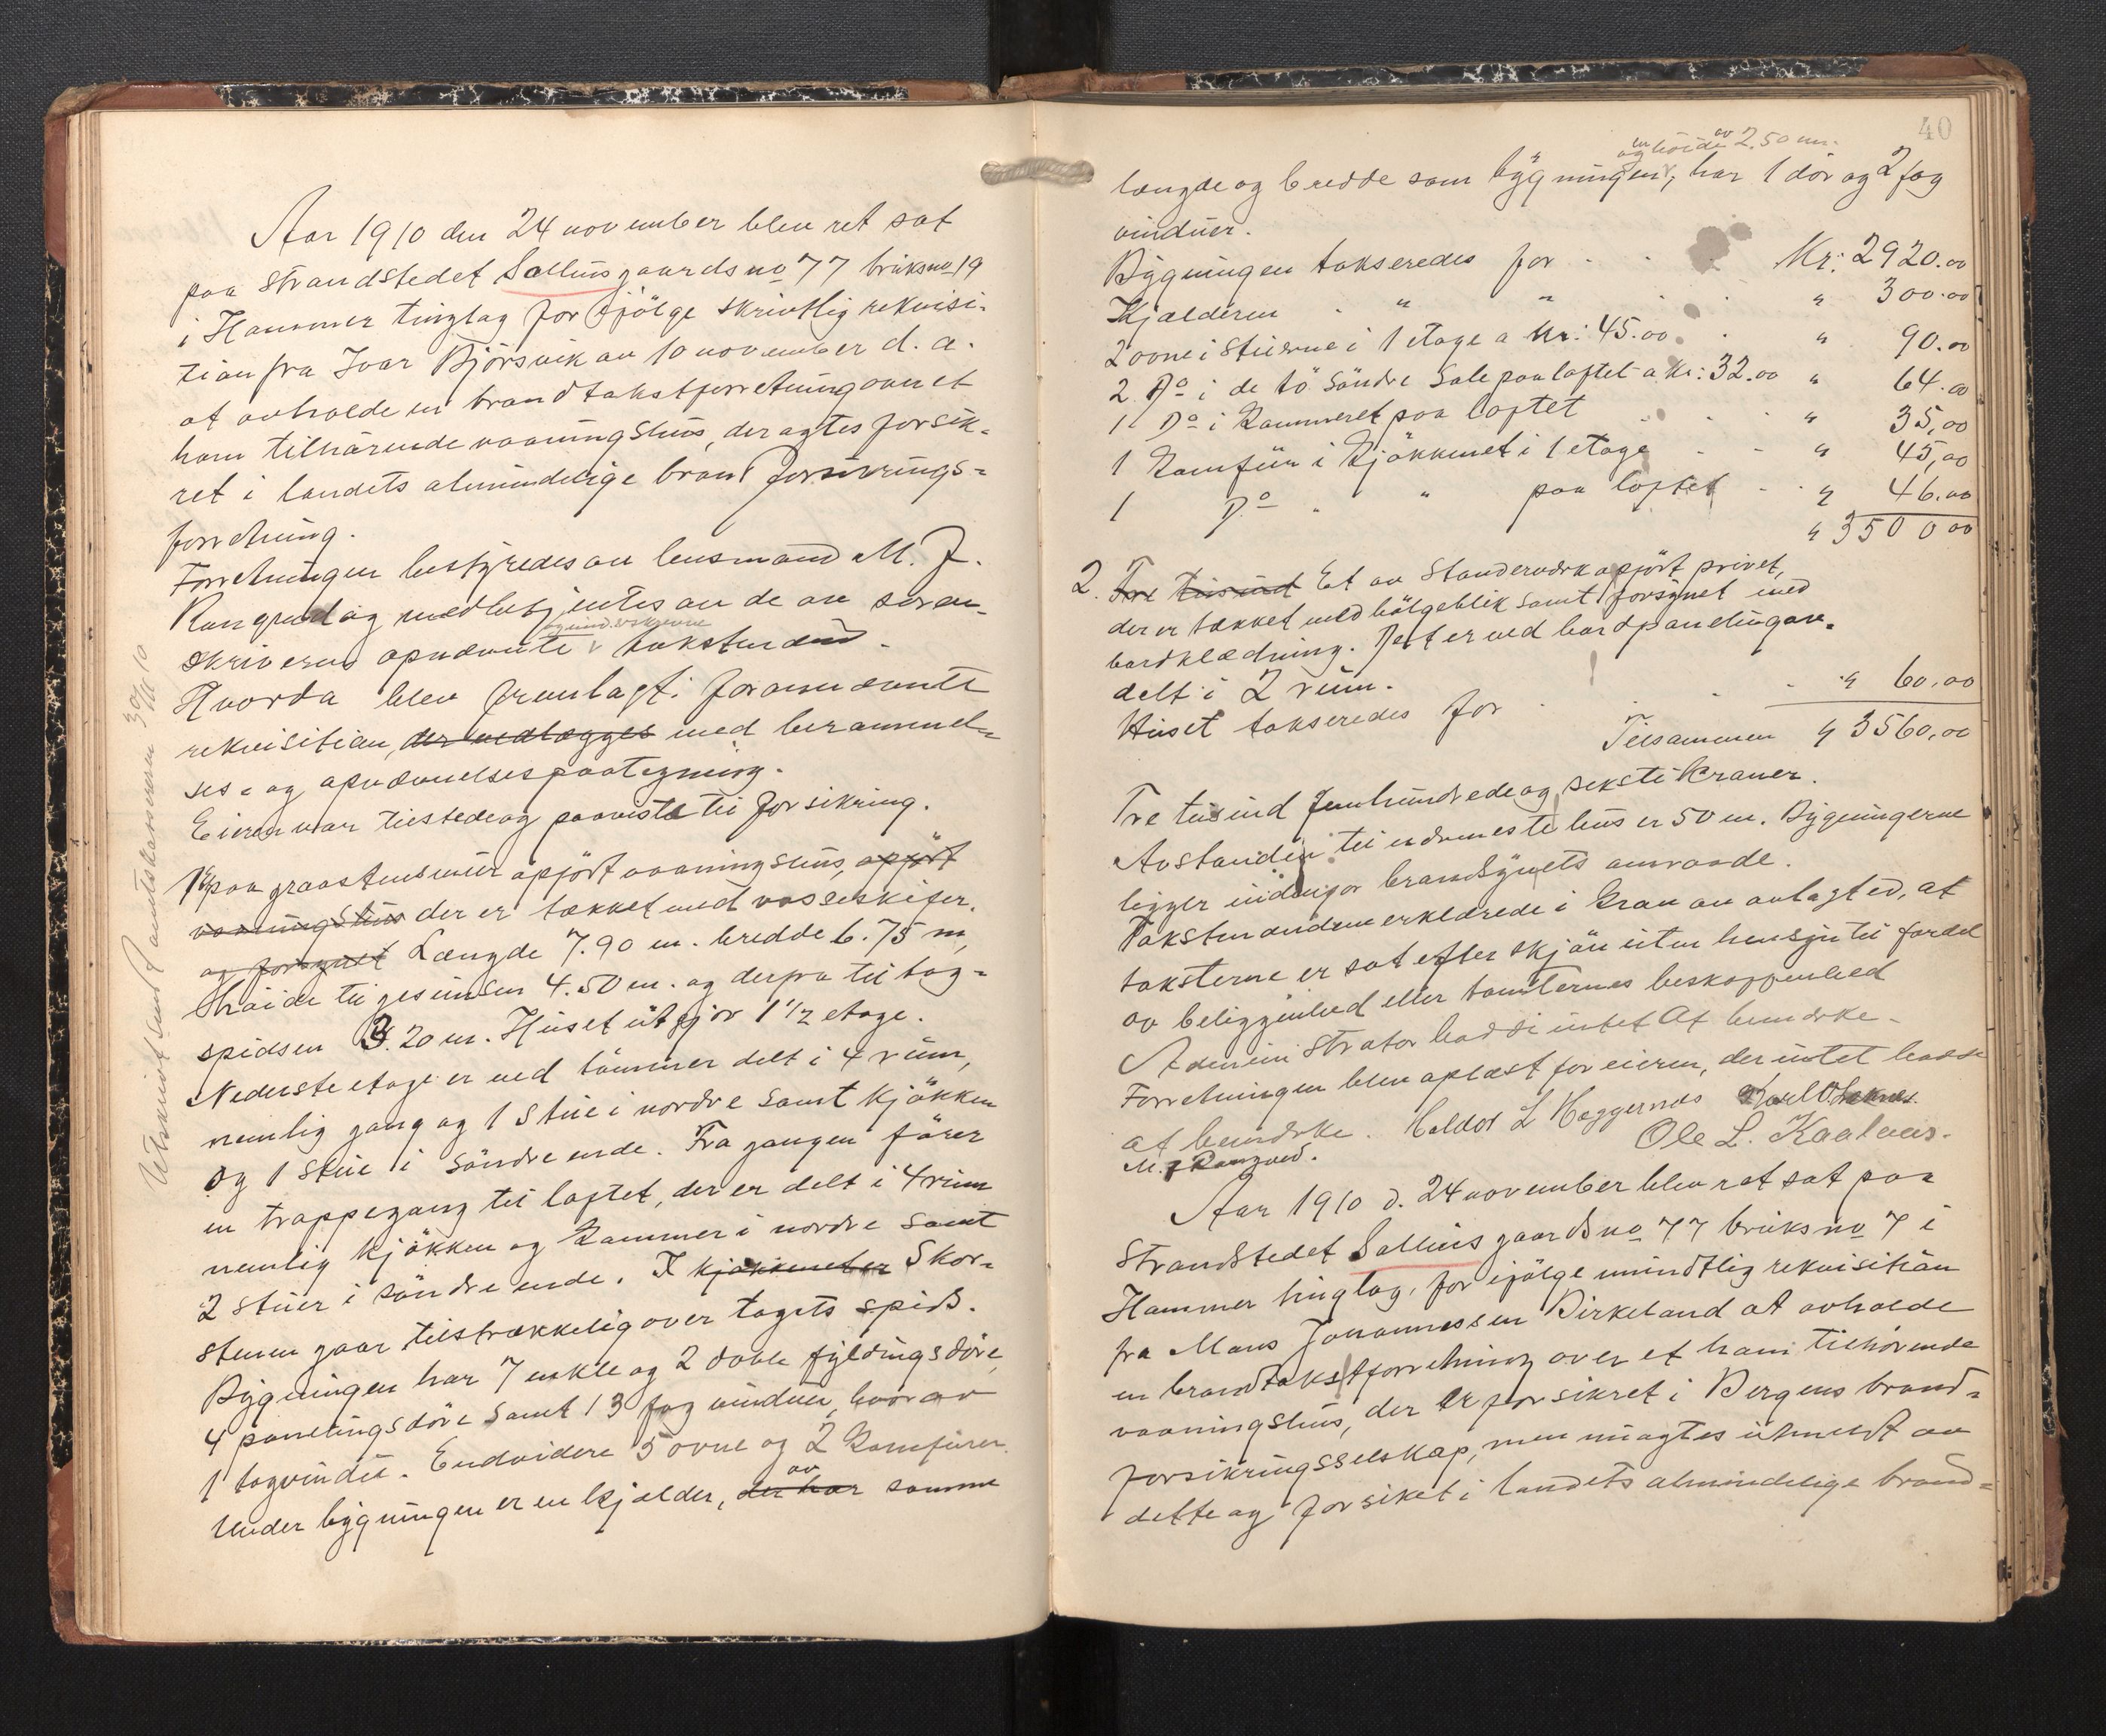 Aar 1910 den 24 november blev ret sat
paa strandstedet Salhus gaardsno 77 bruksno 19
i Hammer tinglag for ifølge skrivtlig rekvisi-
tion fra Ivar Bjørsvik av 10 november d. a.
at avholde en brandtakstforretning over et
ham tilhørende vaaningshus, der agtes forsik-
ret i landets almindelige brandforsikrings-
forretning.
Forretningen bestyredes av lensmand M. J.
Rongved og medbetjentes av de av soren-
skriveren opnævnte takstmænd.
Hvorda blev fremlagt: forannævnte
rekvisition, der vedlægges med berammel-
ses- og opnævnelsespaategning.
Eieren var tilstede og paaviste til forsikring.
1. paa graastensmur opført vaaningshus, opført
vaaningshus der er tækket med vosseskifer.
og forsynet Længde 7.90 m. bredde 6.75 m,
høide til gesimsen 4.50 m. og derfra til tag-
spidsen 3.20 m. Huset utgjør 1 1/2 etage.
Nederste etage er ved tømmer delt i 4 rum,
nemlig gang og 1 stue i nordre samt kjøkken
og 1 stue i søndre ende. Fra gangen fører
en trappegang til loftet, der er delt i 4 rum
nemlig kjøkken og kammer i nordre samt
2 stuer i søndre ende. I kjøkkenet er Skor-
stenen gaar tilstrækkelig over tagets spids.
Bygningen har 7 enkle og 2 doble fyldingsdøre,
4 panelingsdøre samt 13 fag vinduer, hvorav
1 tagvindu. Endvidere 5 ovne og 2 komfurer.
Under bygningen er en kjælder, der har av samme
Utskrift sendt amtskasserer 30/11 10
40
og høide av 2.50 m.
længde og bredde som bygningen, har 1 dør og 2 fag
vinduer.
Bygningen takseredes for Kr: 2920.00
Kjælderen " " " 300.00
2 ovne i stuerne i 1 etage a kr: 45.00 " 90.00
2 Do i de to søndre Sale paa loftet a kr: 32.00 " 64.00
1 Do i kammeret paa loftet " 35,00
1 Komfur i kjøkkenet i 1 etage " 45,00
1 Do " paa loftet " 46.00
" 3500 00
2. Tre tusind Et av standerværk opført privet,
der er tækket med bølgeblik samt forsynet med
bordklædning. Det er ved bordpaneling av-
delt i 2 rum.
Huset takseredes for " 60.00
Tilsammen " 3560,00
Tre tusind femhundrede og seksti kroner.
Avstanden til nærmeste hus er 50 m. Bygningerne
ligger indenfor brandsynets omraade.
Takstmændene erklærede i kraft av avlagt ed, at
taksterne er sat efter skjøn uten hensyn til fordel
av beliggenhed eller tomternes beskaffenhed
Administrator hadde intet at bemærke.
Forretningen blev oplæst for eieren, der intet hadde
at bemærke. Haldor L Heggernes
Ole L. Kaalaas.
M. J Rongved.
Aar 1910 d. 24 november blev ret sat paa
strandstedet Salhus gaardsno 77 bruksno 7 i
Hammer tinglag, for ifølge mundtlig rekvisition
fra Mons Johannessen Birkeland at avholde
en brandtakstforretning over et ham tilhørende
vaaningshus, der er forsikret i Bergens brand-
forsikringsselskap, men nu agtes utmeldt av
dette og forsikret i landets almindelige brand-